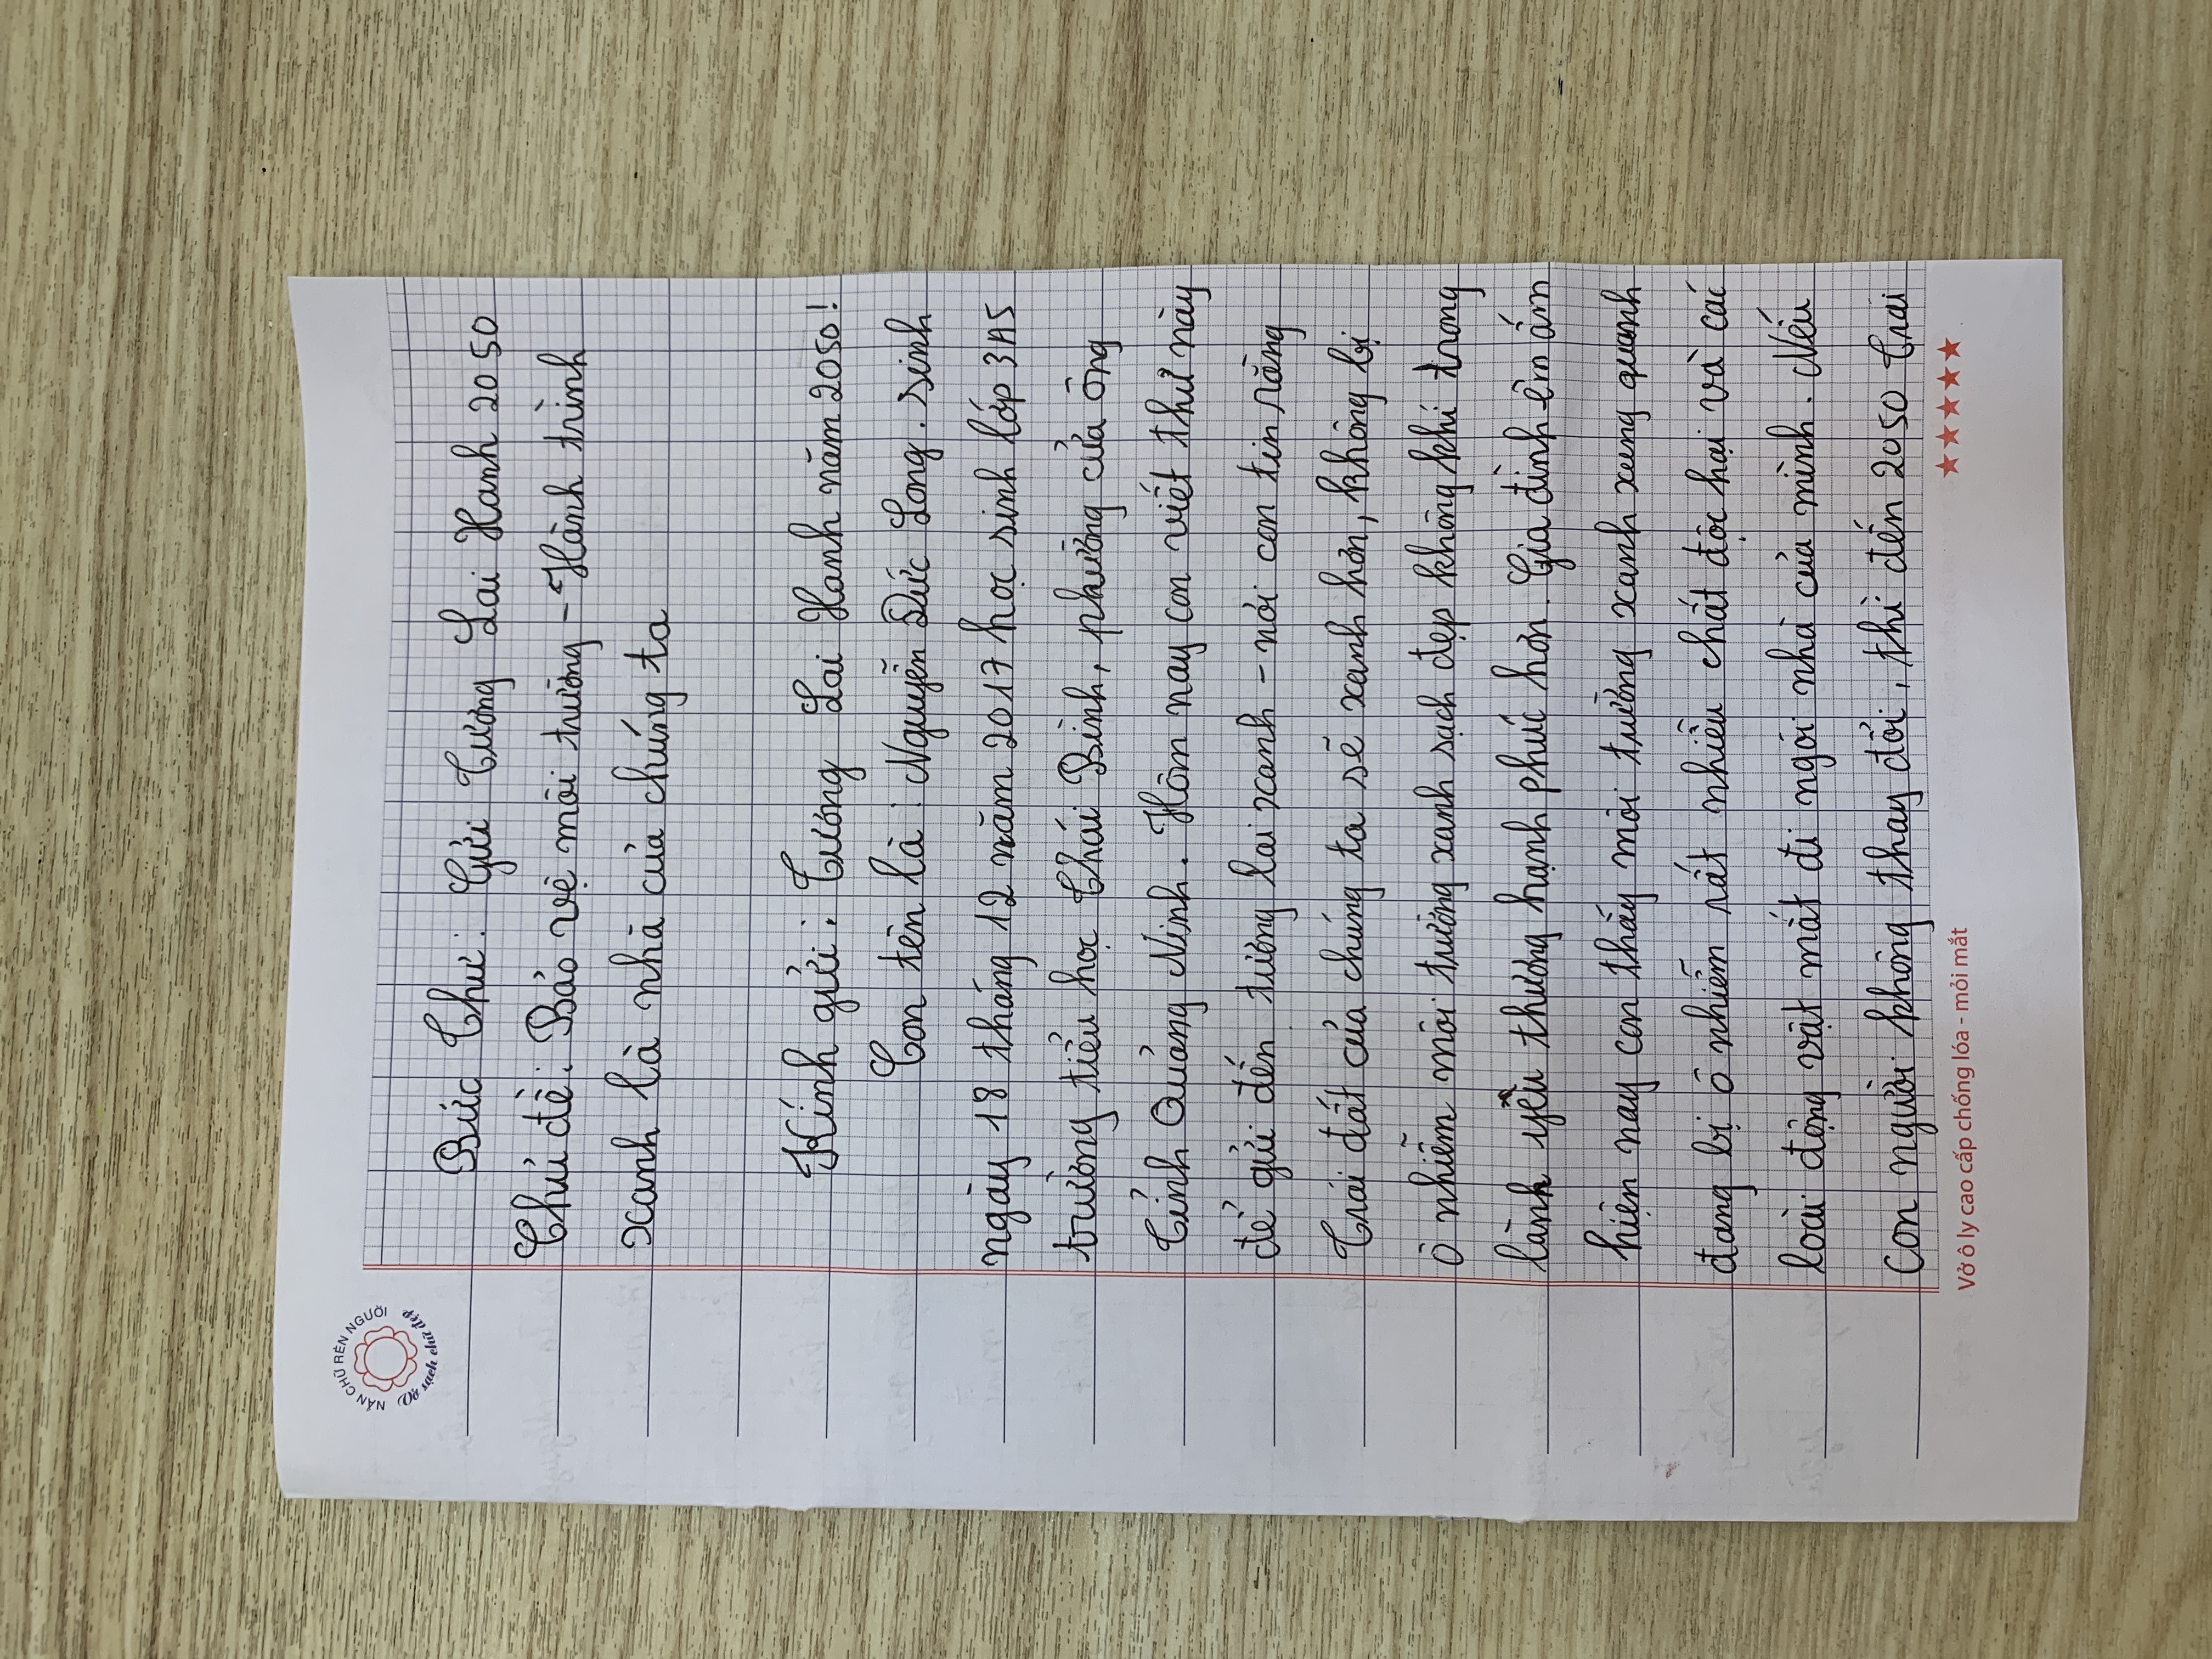 NẮN CHỮ RÈN NGƯỜI
Vở sạch chữ đẹp
Bức Thư: Gửi Tương Lai Hanh 2050
Chủ đề: Bảo vệ môi trường - Hành trình
xanh là nhà của chúng ta
Kính gửi: Tương Lai Hanh năm 2050!
Con tên là: Nguyễn Đức Long. sinh
ngày 18 tháng 12 năm 2017 học sinh lớp 3A5
trường tiểu học Thái Bình, phường cửa Ông
Tỉnh Quảng Ninh. Hôm nay con viết thư này
để gửi đến tương lai xanh - nơi con tin rằng
Trái đất của chúng ta sẽ xanh hơn, không bị
ô nhiễm môi trường xanh sạch đẹp không khí trong
lành yêu thương hạnh phúc hơn. Gia đình êm ấm
hiện nay con thấy môi trường xanh xung quanh
đang bị ô nhiễm rất nhiều chất độc hại và cái
loài động vật mất đi ngôi nhà của mình. Nếu
con người không thay đổi, thì đến 2050 Trái
Vở ô ly cao cấp chống lóa - mỏi mắt